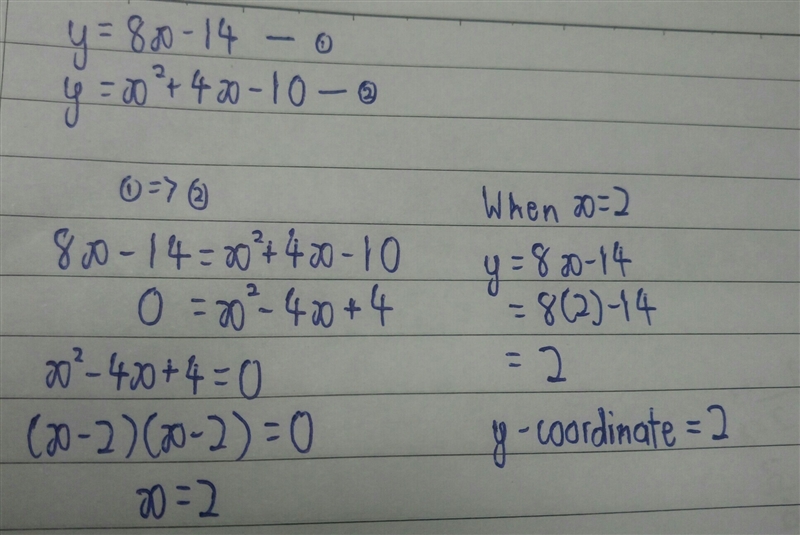 y = 8x - 14 — ①
y = x² + 4x - 10 — ②
① => ②
8x - 14 = x² + 4x - 10
0 = x² - 4x + 4
x² - 4x + 4 = 0
(x - 2)(x - 2) = 0
x = 2
When x = 2
y = 8x - 14
= 8(2) - 14
= 2
y-coordinate = 2